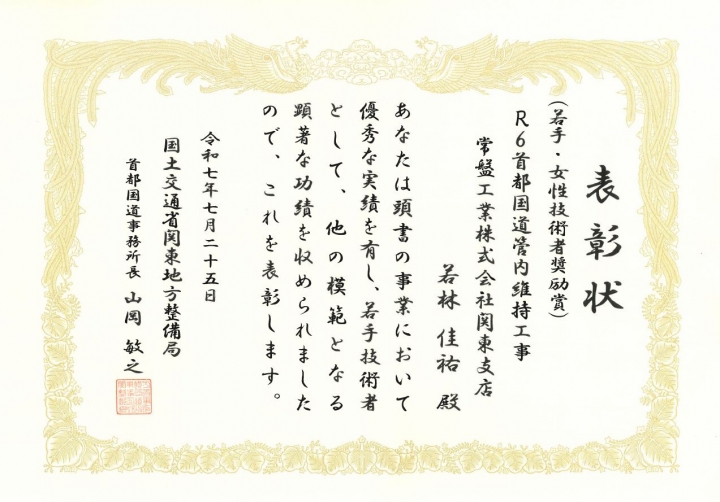 表彰状
(若手・女性技術者奨励賞)
R6首都国道管内維持工事
常盤工業株式会社関東支店
若林 佳祐 殿
あなたは頭書の事業において
優秀な実績を有し、若手技術者
として、他の模範となる
顕著な功績を収められました
ので、これを表彰します。
令和七年七月二十五日
国土交通省関東地方整備局
首都国道事務所長 山岡 敏之